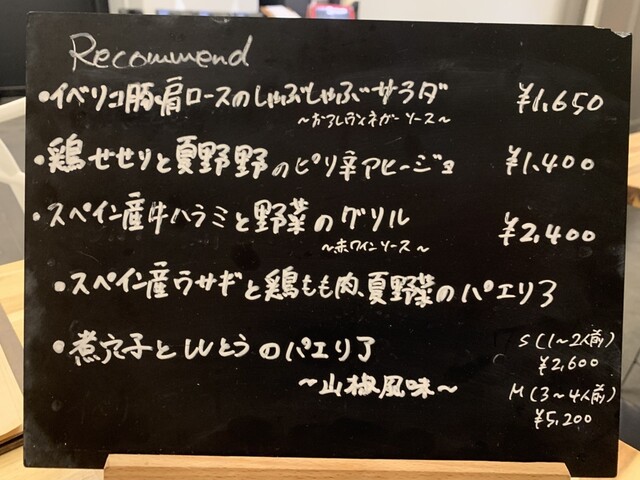 Recommend
・イベリコ豚肩ロースのしゃぶしゃぶサラダ ¥1,650
～おろしヴィネガーソース～
・鶏せせりと夏野野のピリ辛アヒージョ ¥1,400
・スペイン産牛ハラミと野菜のグリル ¥2,400
～赤ワインソース～
・スペイン産ウサギと鶏もも肉、夏野菜のパエリア
・煮穴子といんとうのパエリア
～山椒風味～
S(1～2人前)
¥2,600
M(3～4人前)
¥5,200